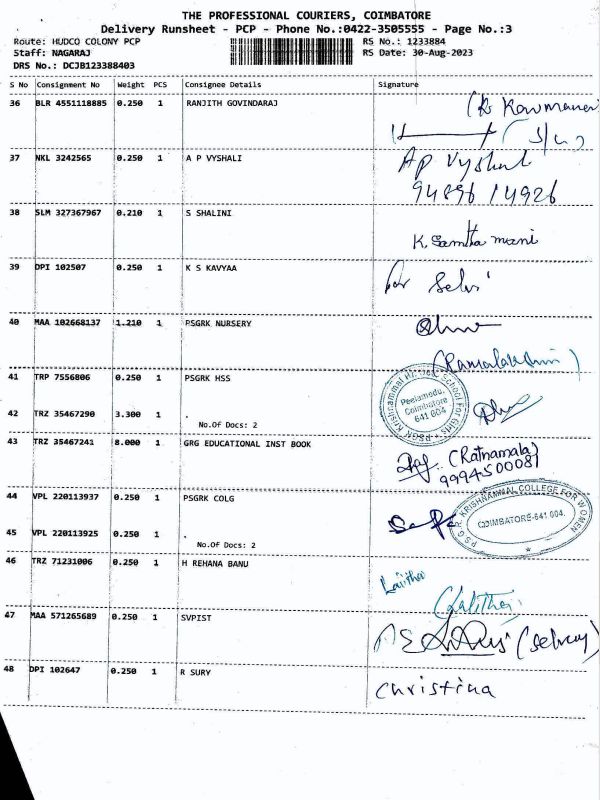 THE PROFESSIONAL COURIERS, COIMBATORE
Delivery Runsheet - PCP - Phone No.:0422-3505555 - Page No.:3
Route: HUDCO COLONY PCP
RS No.: 1233884
Staff: NAGARAJ
RS Date: 30-Aug-2023
DRS No.: DCJB123388403
S No Consignment No Weight PCS Consignee Details Signature
36 BLR 4551118885 0.250 1 RANJITH GOVINDARAJ
37 NKL 3242565 0.250 1 A P VYSHALI
AP Vyshali
94896 14926
38 SLM 327367967 0.210 1 S SHALINI
39 DPI 102507 0.250 1 K S KAVYAA
for Selvi
40 MAA 102668137 1.210 1 PSGRK NURSERY
41 TRP 7556806 0.250 1 PSGRK HSS
Peelamedu,
Coimbatore
641 004
42 TRZ 35467290 3.300 1 .
No.Of Docs: 2
43 TRZ 35467241 8.000 1 GRG EDUCATIONAL INST BOOK
(Ratnamala)
9994500081
44 VPL 220113937 0.250 1 PSGRK COLG
P S G R KRISHNAMMAL COLLEGE FOR WOMEN
COIMBATORE-641 004.
45 VPL 220113925 0.250 1 .
No.Of Docs: 2
46 TRZ 71231006 0.250 1 H REHANA BANU
Lalitha
47 MAA 571265689 0.250 1 SVPIST
48 DPI 102647 0.250 1 R SURY
Christina